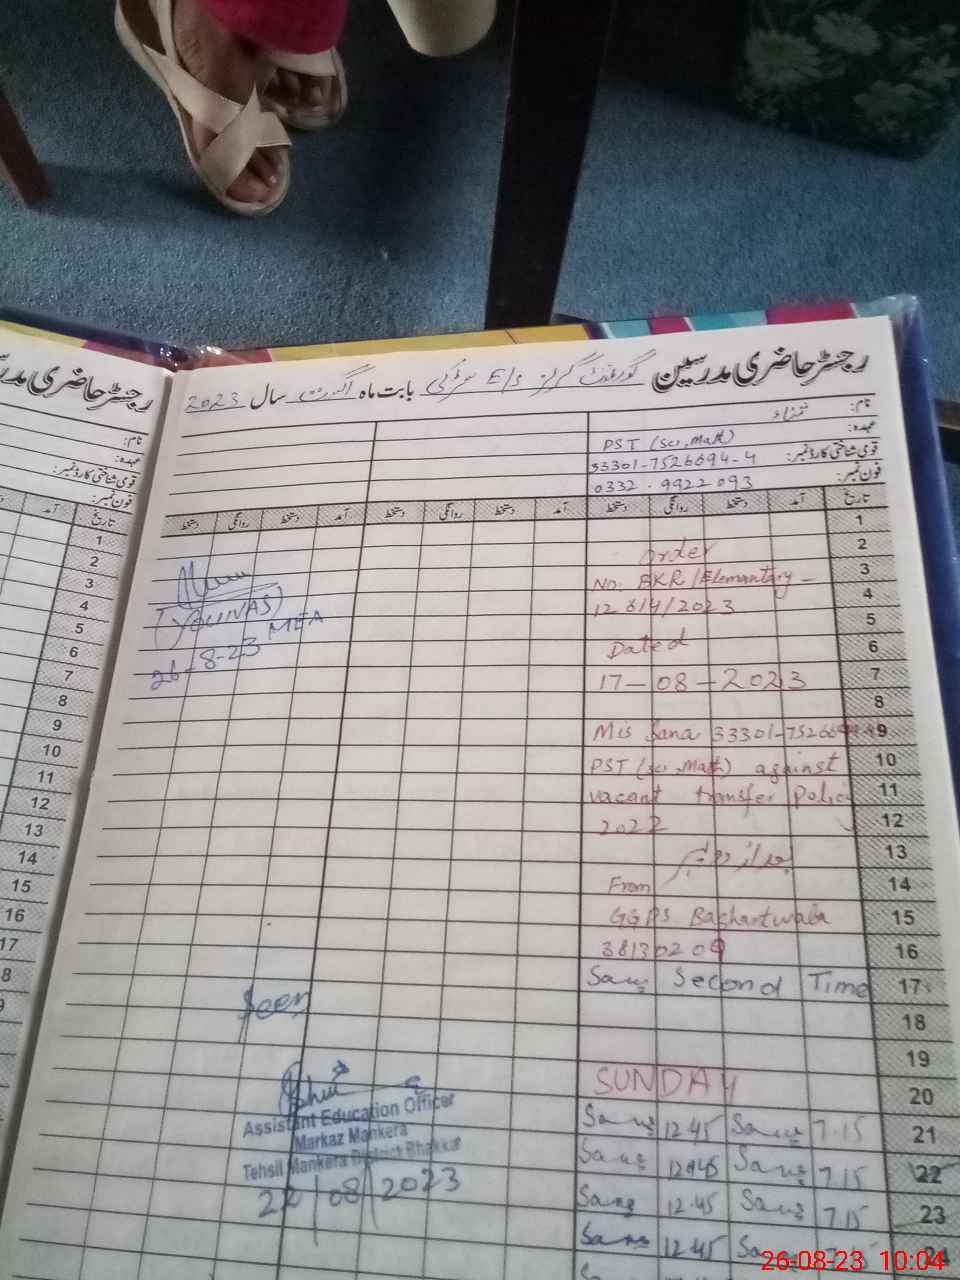 رجسٹر حاضری مدرسین گورنمنٹ گرلز E/S بابت ماہ اگست سال 2023
نام: ثناء
عہدہ: PST (Sci, Math)
قومی شناختی کارڈ نمبر: 33301-7526694-4
فون نمبر: 0332-9922093
تاریخ آمد دستخط روانگی دستخط آمد دستخط روانگی دستخط
1
2
3
4
5
6
7
8
9
10
11
12
13
14
15
16
17
18
19
20
21
22
23
24
Order
No. BKR/Elemantary-
12614/2023
Dated
17-08-2023
Mis Sana 33301-7526694-4
PST (Sci, Math) against
vacant transfer Policy
2022
بعد از دوپہر
From
GGPS Basharatwala
38130209
Sana Second Time
SUNDAY
Sana 12.45 Sana 7.15
Sana 12.45 Sana 7.15
Sana 12.45 Sana 7.15
Sana 12.45 Sana 7.15
(YOUNAS)
MEA
26-8-23
Seen
Assistant Education Officer
Markaz Mankera
Tehsil Mankera District Bhakkar
22/08/2023
رجسٹر حاضری
نام:
عہدہ:
قومی شناختی کارڈ نمبر:
فون نمبر:
تاریخ آمد
1
2
3
4
5
6
7
8
9
10
11
12
13
14
15
16
17
8
26-08-23 10:04